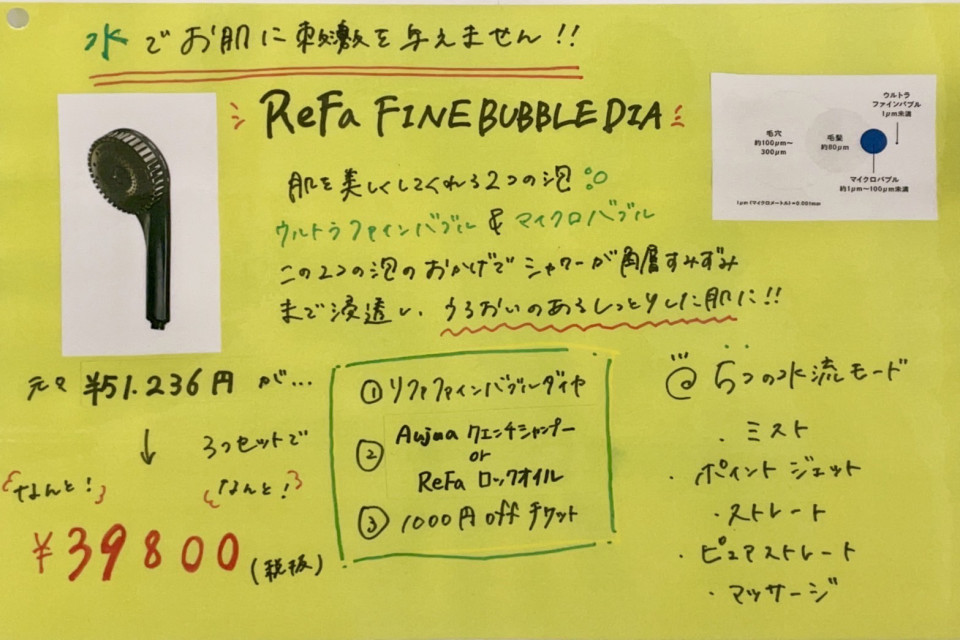 水でお肌に刺激を与えません!!
ReFa FINE BUBBLE DIA
肌を美しくしてくれる2つの泡
ウルトラファインバブル & マイクロバブル
この2つの泡のおかげでシャワーが角層すみずみ
まで浸透し、うるおいのあるしっとりした肌に!!
ウルトラ
ファインバブル
1μm未満
毛穴
約100μm~
300μm
毛髪
約80μm
マイクロバブル
約1μm~100μm未満
1μm(マイクロメートル)=0.001mm
元々 ¥51.236円 が...
↓ 3つセットで
なんと! なんと!
¥39800(税抜)
① リファファインバブルダイヤ
② Aujua クエンチシャンプー
or
ReFa ロックオイル
③ 1000円offチケット
@ 5つの水流モード
・ミスト
・ポイントジェット
・ストレート
・ピュアストレート
・マッサージ